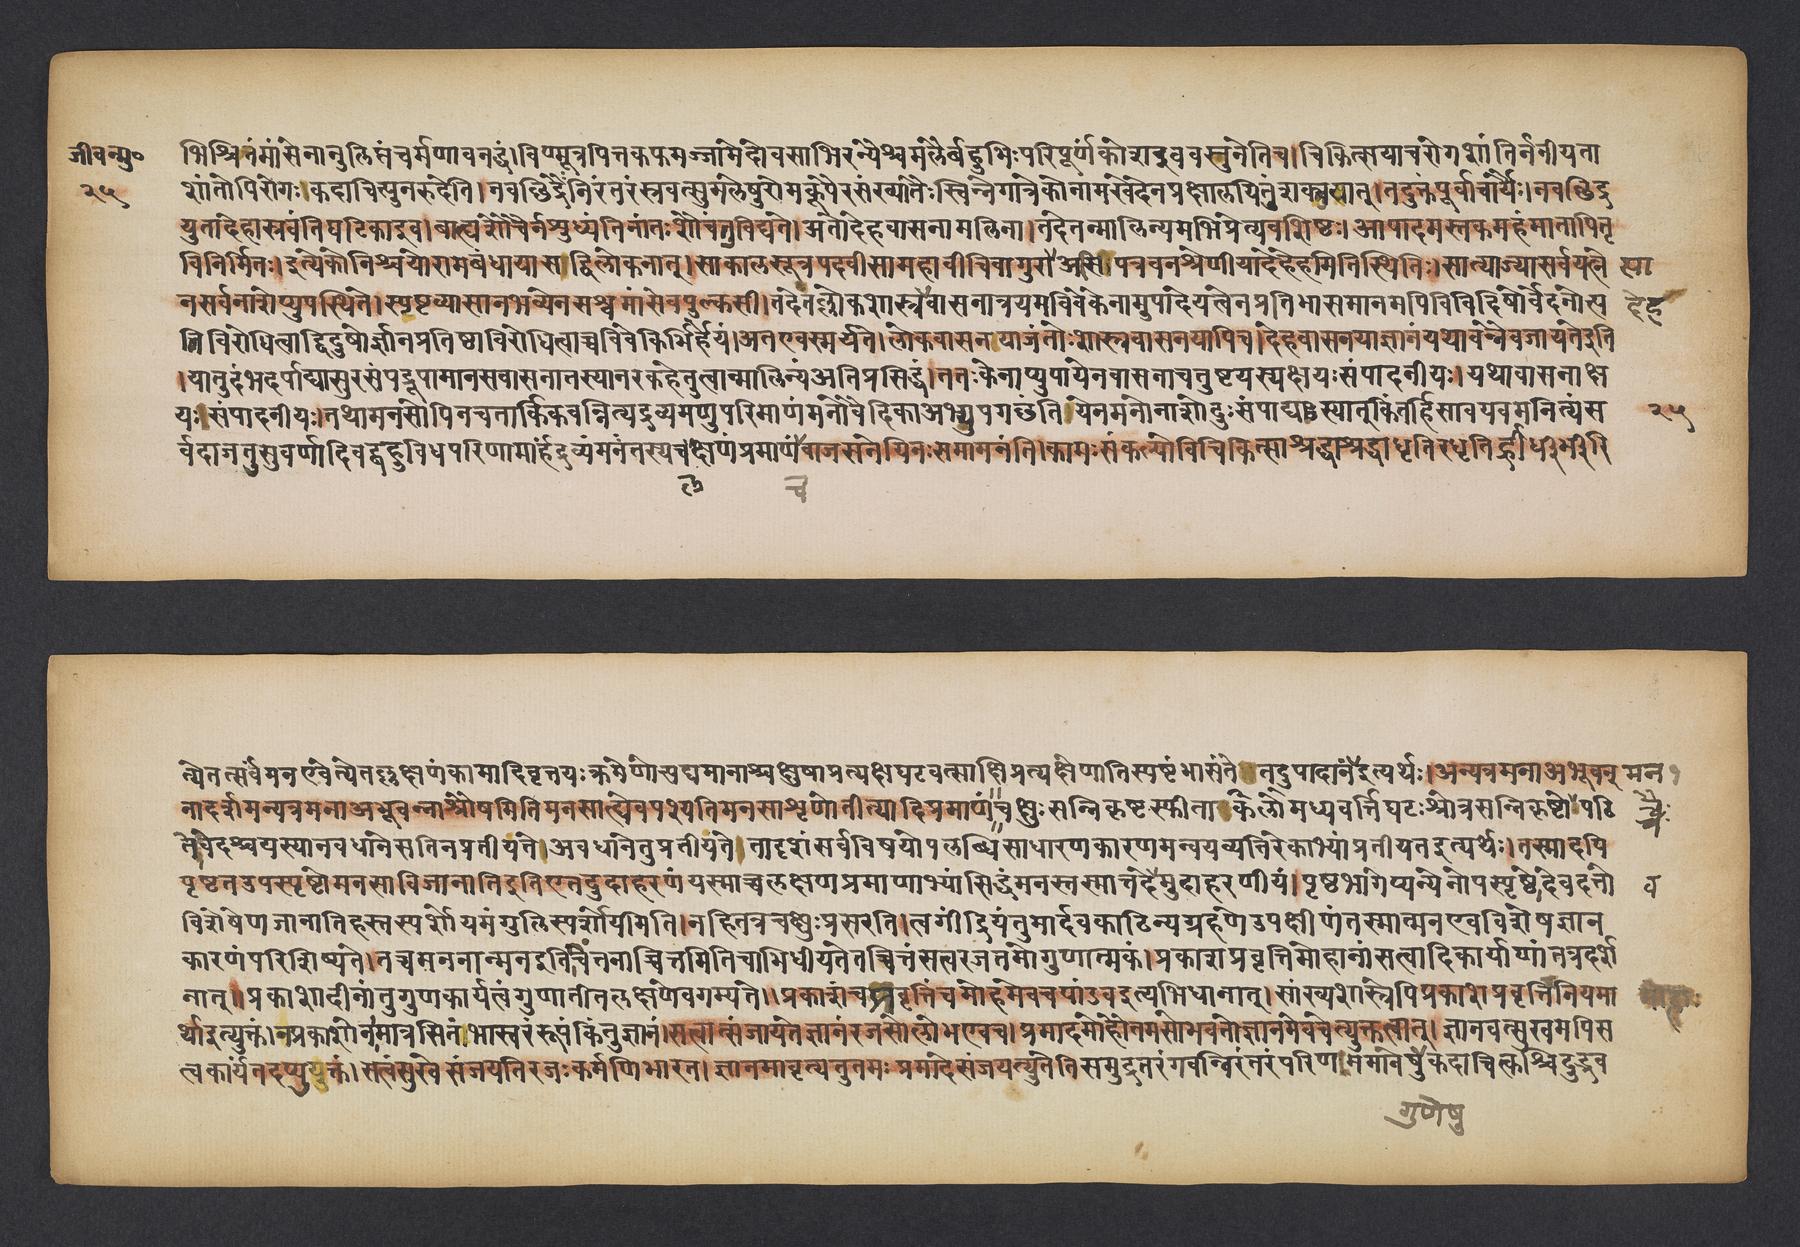 जीवन्मु॰
२५
भिश्चितंमांसेनानुलिप्तंचर्मणावनद्धं।विण्मूत्रपित्तकफमज्जामेदोवसाभिरन्यैश्चमलैर्बहुभिःपरिपूर्णंकोशइववस्तुनेतिच।चिकित्सयाचरोगशांतिर्ननीयता
शांतोपिरोगःकदाचित्पुनरुदेति।नवछिद्रैर्निरंतरंस्रवत्सुमलेषुरोमकूपैरसंख्यातैःस्विन्नेगात्रेकोनामखेदेनप्रक्षालयितुंशक्नुयात्।तदुक्तंपूर्वाचार्यैः।नवछिद्र
युतादेहास्रवंतिघटिकाइव।बाह्यशौचैर्नशुध्यंतिनांतःशौचंतुविद्यते।अतोदेहवासनामलिना।तदेतन्मालिन्यमभिप्रेत्यवशिष्टः।आपादमस्तकमहंमातापितृ
विनिर्मितः।इत्येकोनिश्चयोरामबंधायासद्विलोकनात्।साकालसूत्रपदवीसामहावीचिवागुरा।असिपत्रवनश्रेणीयादेहेहमितिस्थितिः।सात्याज्यासर्वयत्ने
नसर्वनाशेप्युपस्थिते।स्पृष्टव्यासानभव्येनसश्वमांसेवपुल्कसी।तदेतल्लोकशास्त्रवासनात्रयमविवेकेनामुपादेयत्वेनप्रतिभासमानमपिविविदिषोर्वेदनोत्प
देह
त्तिविरोधित्वाद्विदुषोर्ज्ञानप्रतिष्ठाविरोधित्वाच्चविवेकिभिर्हेयं।अतएवस्मर्यते।लोकवासनयाजंतोःशास्त्रवासनयापिच।देहवासनयाज्ञानंयथावन्नैवजायतेइति
।यातुदंभदर्पाद्यासुरसंपद्रूपामानसवासनातस्यानरकहेतुत्वान्मालिन्यंअतिप्रसिद्धं।ततःकेनाप्युपायेनवासनाचतुष्टयस्यक्षयःसंपादनीयः।यथावासनाक्ष
यःसंपादनीयः।तथामनसोपिनचतार्किकवन्नित्यद्रव्यमणुपरिमाणंमनोवैदिकाअभ्युपगछंति।येनमनोनाशोदुःसंपाद्यःस्यात्किंतर्हिसावयवमनित्यंस
२५
र्वदाजतुसुवर्णादिवद्बहुविधपरिणामार्हंद्रव्यंमनंतस्यचक्षणंप्रमाणंवाजसनेयिनःसमामनंति।कामःसंकल्पोविचिकित्साश्रद्धाश्रद्धाधृतिरधृतिर्ह्रीर्धीर्भीरि
ल च
त्येतत्सर्वंमनएवेत्येतल्लक्षणंकामादिवृत्तयःक्रमेणोत्पद्यमानाश्चक्षुषाप्रत्यक्षघटवत्साक्षिप्रत्यक्षेणातिस्पष्टंभासंते।तदुपादानंइत्यर्थः।अन्यत्रमनाअभूवन् मन१
नादर्शमन्यत्रमनाअभूवन्नाश्रौषमितिमनसाह्येवपश्यतिमनसाशृणोतीत्यादिप्रमाणंचक्षुःसन्निकृष्टस्फीतालोकमध्यवर्त्तिघटःश्रोत्रसन्निकृष्टोपठि
तोवेदश्चयस्यानवधानेसतिनप्रतीयते।अवधानेतुप्रतीयते।तादृशंसर्वविषयोपलब्धिसाधारणकारणमन्वयव्यतिरेकाभ्यांप्रतीयतइत्यर्थः।तस्मादपि
पृष्टतउपस्पृष्टोमनसाविजानातिइतिएतदुदाहरणंयस्माच्चलक्षणप्रमाणाभ्यांसिद्धंमनस्तस्मात्तदेवमुदाहरणीयं।पृष्ठभागेप्यन्येनोपस्पृष्टोदेवदत्तो
व
विशेषेणजानातिहस्तस्पर्शोयमंगुलिस्पर्शोयमिति।नहितत्रचक्षुःप्रसरति।त्वगींद्रियंतुमार्दवकाठिन्यग्रहणेउपक्षीणंतस्मान्मनएवविशेषज्ञान
कारणंपरिशिष्यते।तच्चमननान्मनइतिचेतनाच्चित्तमितिचाभिधीयतेतच्चित्तंसत्वरजतमोगुणात्मकं।प्रकाशप्रवृत्तिमोहानांसत्वादिकार्याणांतत्रदर्श
नात्।।प्रकाशादीनांतुगुणकार्यत्वंगुणातीतलक्षणेवगम्यते।।प्रकाशंचप्रवृत्तिंचमोहमेवचपांडवइत्यभिधानात्।सांख्यशास्त्रेपिप्रकाशप्रवृत्तिनियमा
र्थाइत्युक्तं।नप्रकाशोनमात्रसितंभास्वरंरूपंकिंतुज्ञानं।सत्वात्संजायतेज्ञानंरजसोलोभएवच।प्रमादमोहौतमसोभवतोज्ञानमेवचेत्युक्तत्वात्।ज्ञानवत्सुखमपिस
त्वकार्यंतदप्युक्तं।सत्वंसुखेसंजयतिरजःकर्मणिभारत।ज्ञानमावृत्यतुतमःप्रमादेसंजयत्युतेतिसमुद्रतरंगवन्निरंतरंपरिणममानेषुकदाचित्कश्चिदुद्भव
गुणेषु